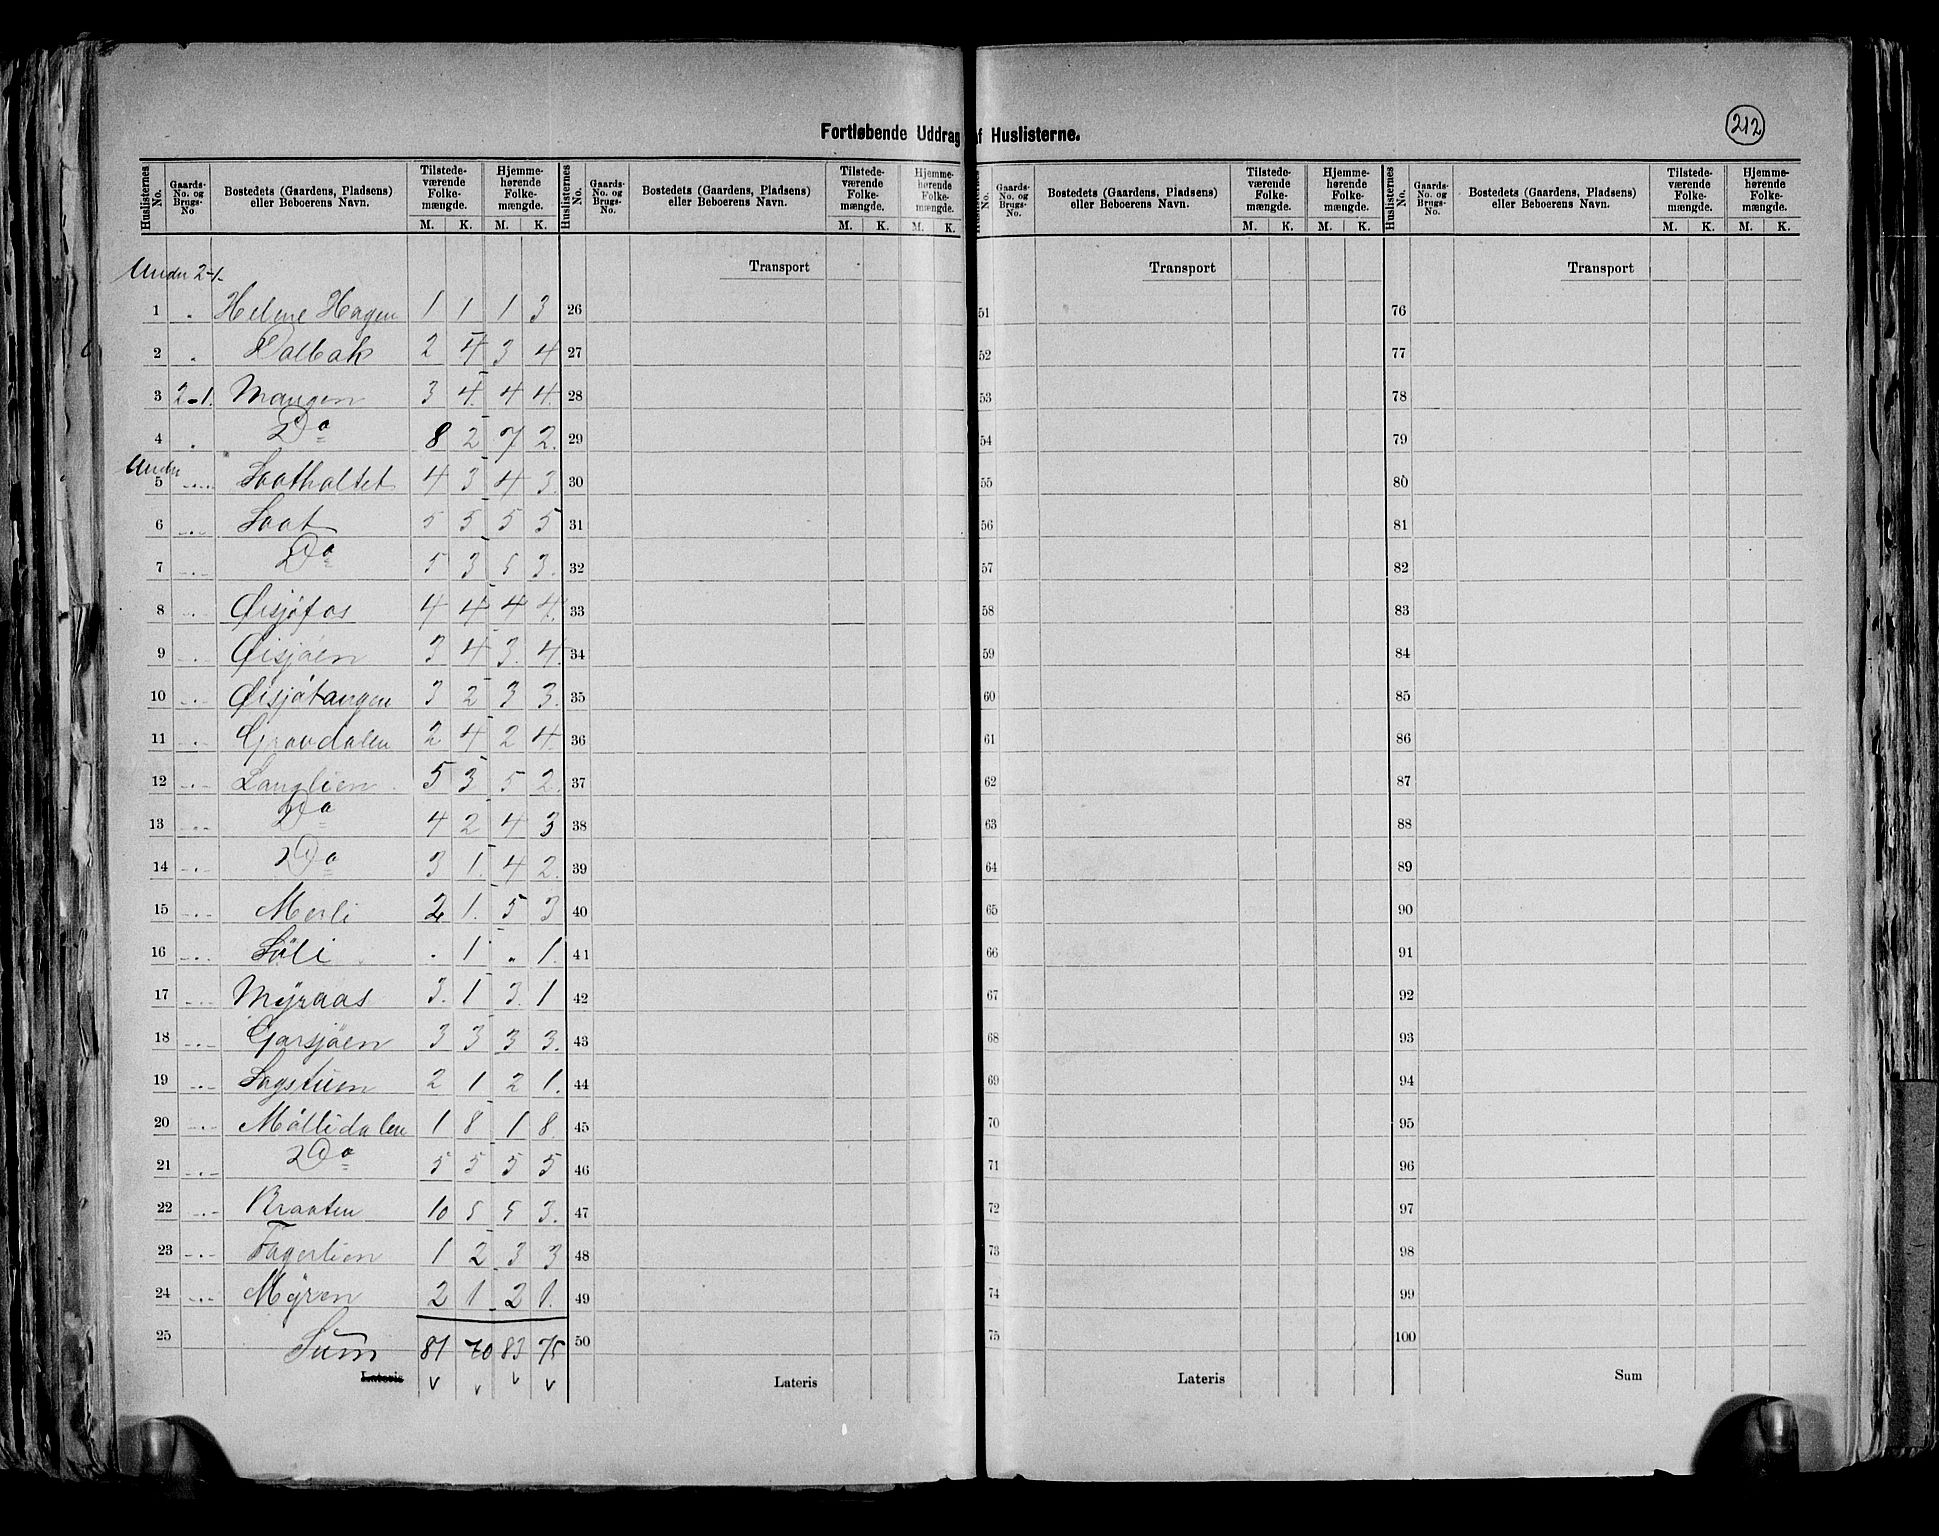 Fortløbende Uddrag af Huslisterne.
212
Huslisternes No. Gaards-No. og Brugs-No. Bostedets (Gaardens, Pladsens) eller Beboerens Navn. Tilstedeværende Folkemængde. M. K. Hjemmehørende Folkemængde. M. K.
Huslisternes No. Gaards-No. og Brugs-No. Bostedets (Gaardens, Pladsens) eller Beboerens Navn. Tilstedeværende Folkemængde. M. K. Hjemmehørende Folkemængde. M. K.
Huslisternes No. Gaards-No. og Brugs-No. Bostedets (Gaardens, Pladsens) eller Beboerens Navn. Tilstedeværende Folkemængde. M. K. Hjemmehørende Folkemængde. M. K.
Huslisternes No. Gaards-No. og Brugs-No. Bostedets (Gaardens, Pladsens) eller Beboerens Navn. Tilstedeværende Folkemængde. M. K. Hjemmehørende Folkemængde. M. K.
Under 2-1. Transport Transport Transport
1 Helene Hagen 1 1 1 3 26 51 76
2 Dalbak 2 4 3 4 27 52 77
3 2-1. Mangen 3 4. 4 4. 28 53 78
4 Do 8 2 7 2. 29 54 79
Under
5 Saatholtet 4 3 4 3. 30 55 80
6 Saat 5 5 5 5 31 56 81
7 Do 5 3 5 3. 32 57 82
8 Øisjøfos 4 4 4 4. 33 58 83
9 Øisjøen 3 4 3. 4. 34 59 84
10 Øisjøtangen 3 2 3 3. 35 60 85
11 Gravdalen 2 4 2 4. 36 61 86
12 Langlien 5 3 5 2. 37 62 87
13 Do 4 2 4 3 38 63 88
14 Do 3 1. 4 2. 39 64 89
15 Merli 2 1. 5 3 40 65 90
16 Søli . 1 „ 1. 41 66 91
17 Myraas 3. 1 3. 1 42 67 92
18 Garsjøen 3 3 3 3. 43 68 93
19 Sagstuen 2 1 2 1. 44 69 94
20 Møllidalen 1 8 1 8. 45 70 95
21 Do 5 5 5 5 46 71 96
22 Braaten 10 5 5 3. 47 72 97
23 Fagerlien 1 2 3 3 48 73 98
24 Myren 2 1 2 1. 49 74 99
25 Sum 81 70 83 75 50 75 100
Lateris v v v v Lateris Lateris Sum